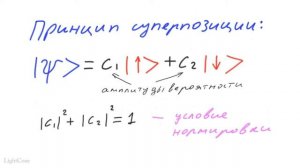 Принцип суперпозиции:
|ψ> = c₁|↑> + c₂|↓>
амплитуды вероятности
|c₁|² + |c₂|² = 1 — условие
нормировки
LightCone